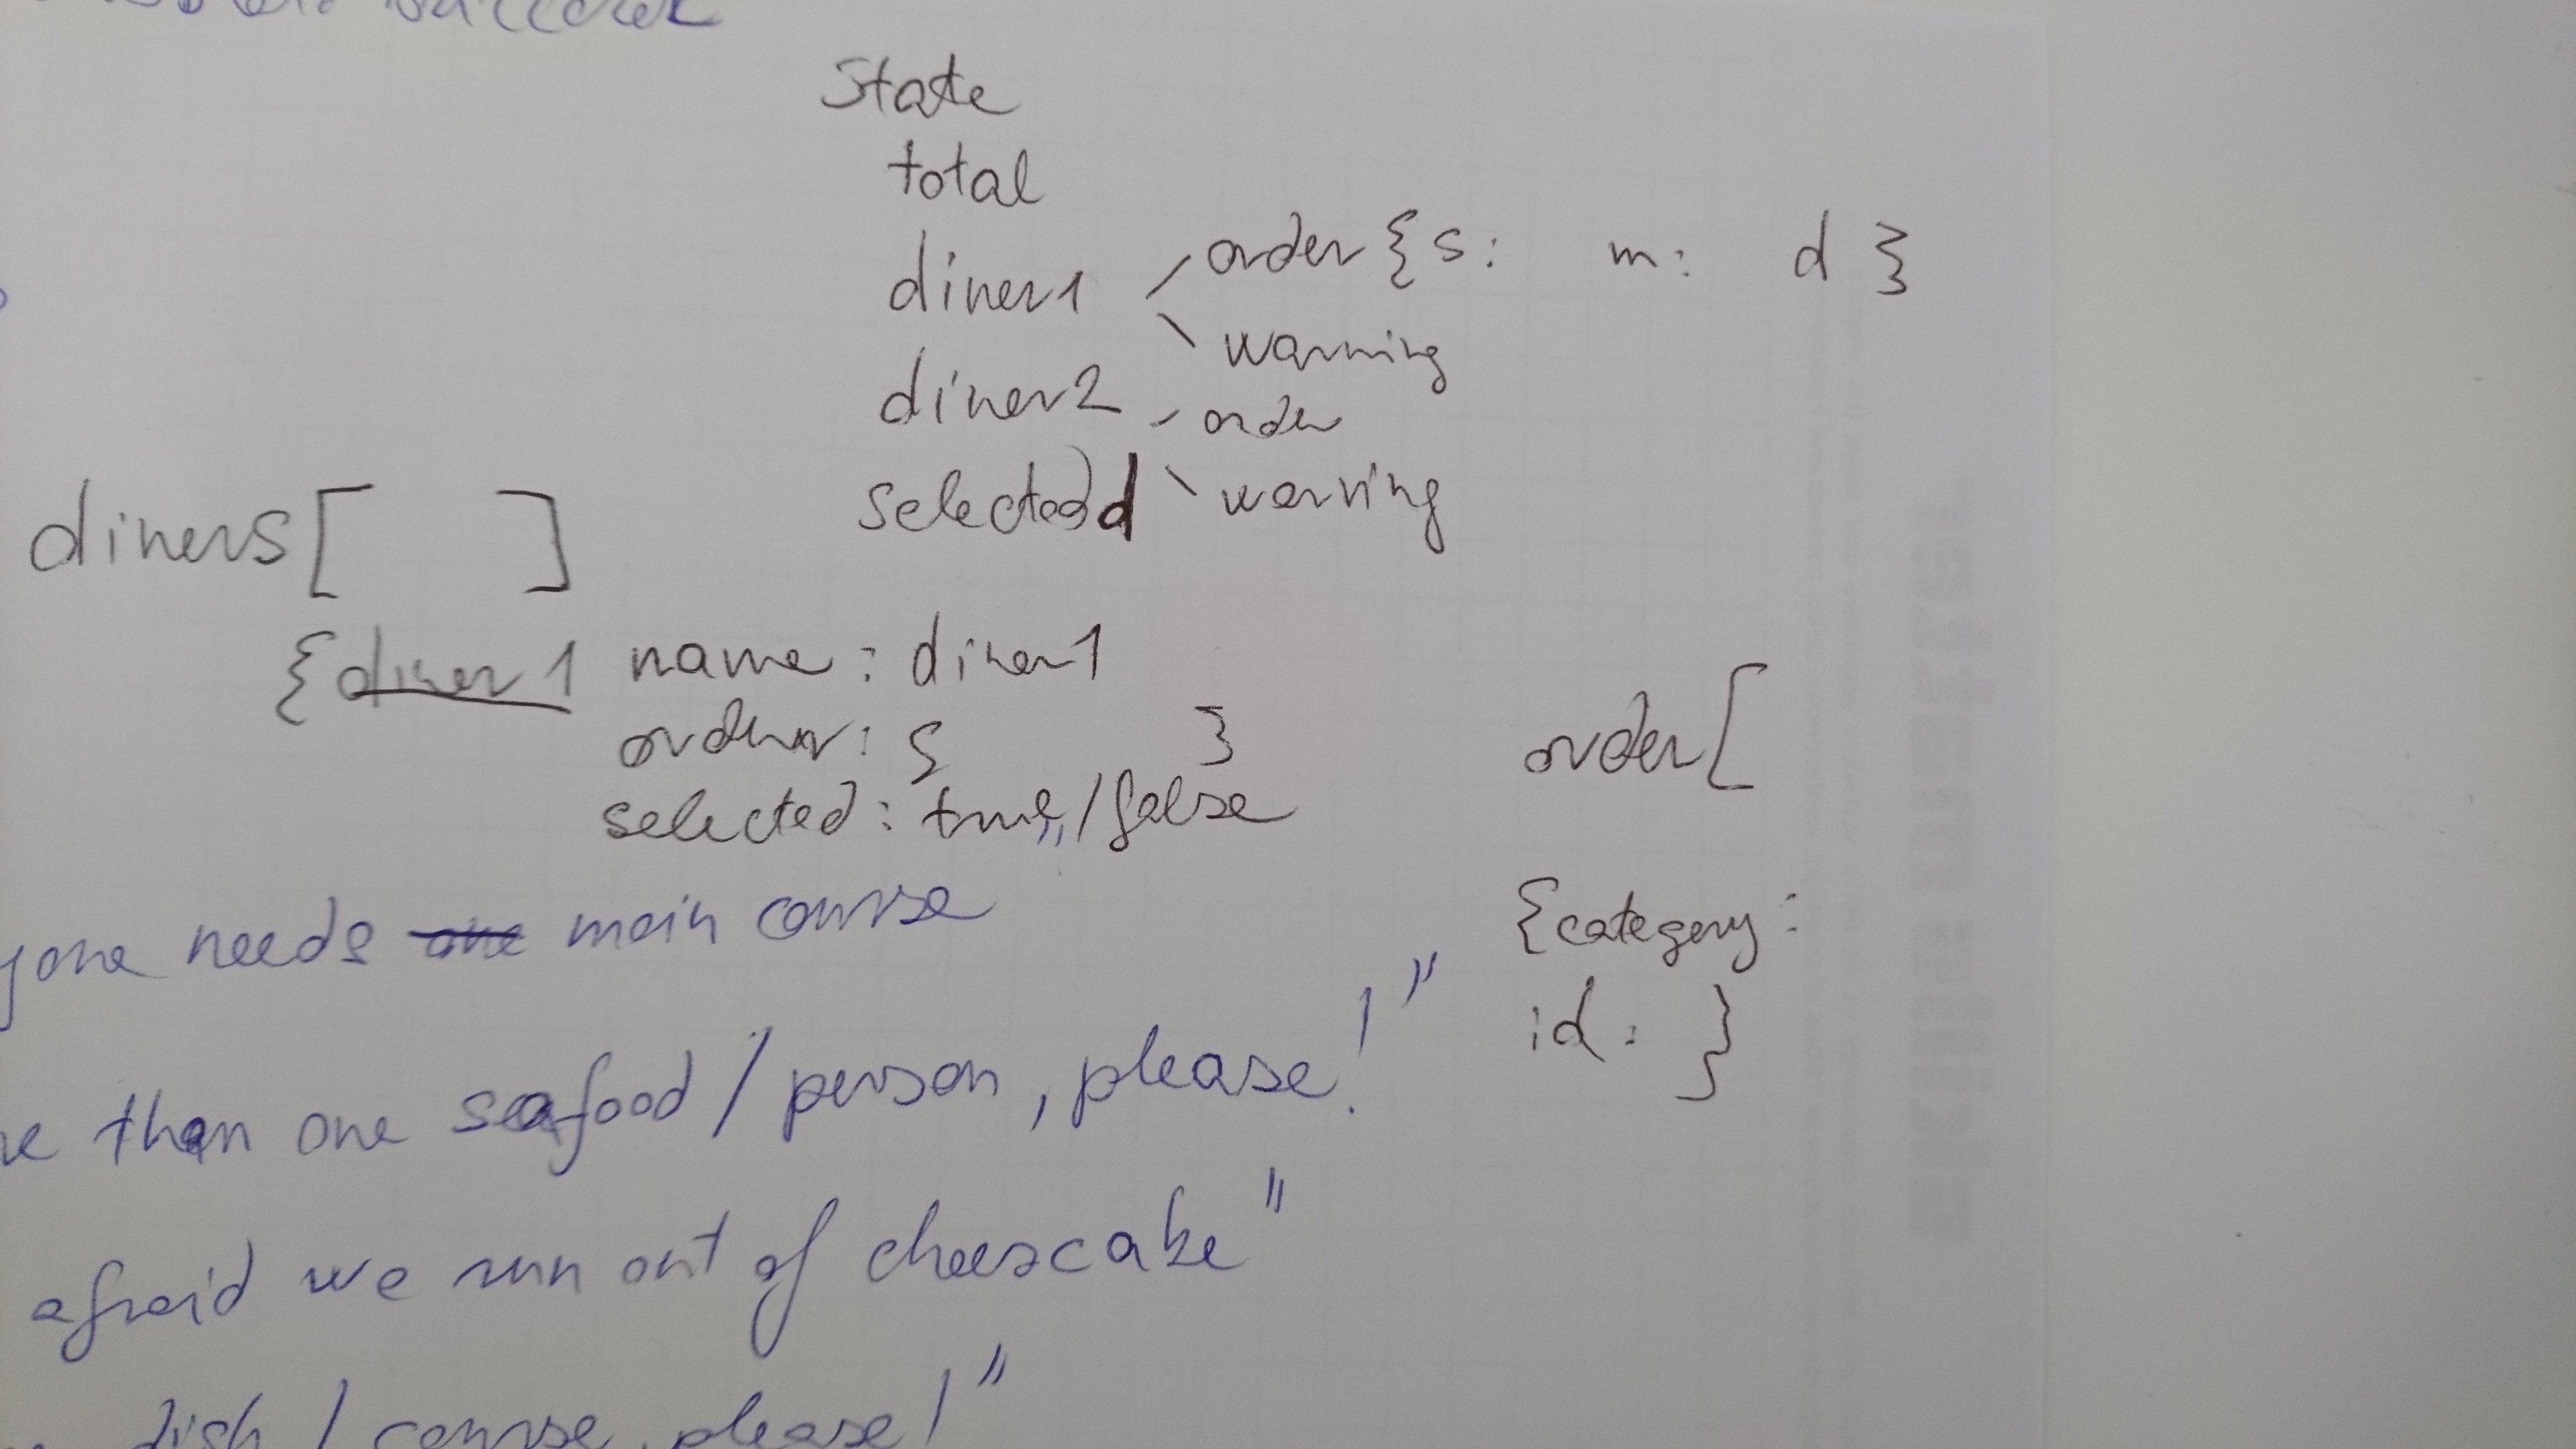 State
total
diner1 order{s: m: d }
warning
diner2 order
selected d warning
diners[ ]
{diner1 name: diner1
order: { }
selected: true/false
order[
{category:
id: }
yone needs one main course
"
e than one seafood / person, please!"
afraid we run out of cheescake"
dish / course, please!"